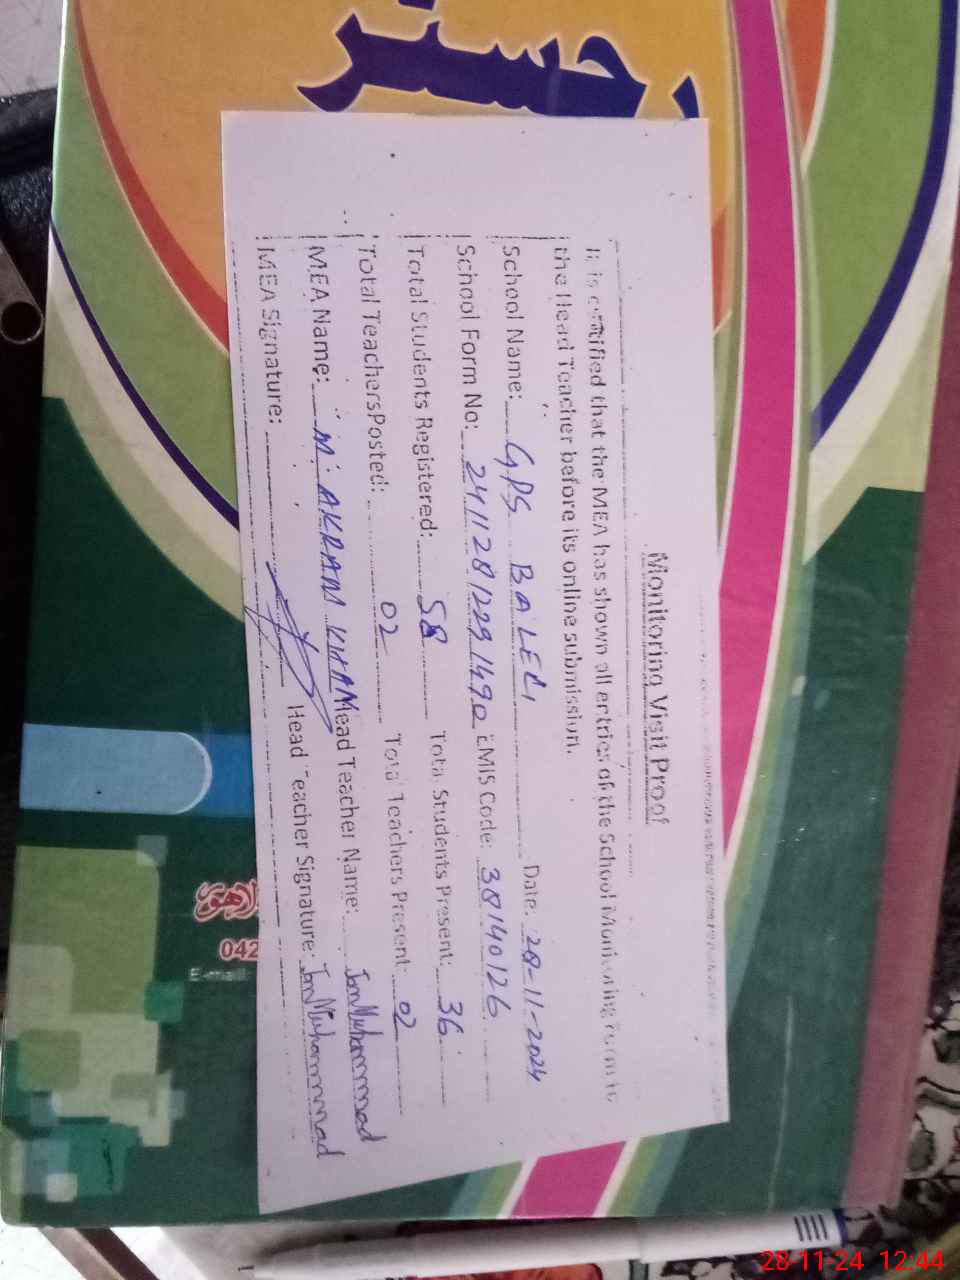 رجسٹر
Monitoring Visit Proof
It is certified that the MEA has shown all entries of the School Monitoring Form to
the Head Teacher before its online submission.
School Name: GPS BALECI Date: 28-11-2024
School Form No: 24112812291490 EMIS Code: 38140126
Total Students Registered: 58 Total Students Present: 36
Total TeachersPosted: 02 Total Teachers Present: 02
MEA Name: M. AKRAM KHAN Head Teacher Name: Jan Muhammad
MEA Signature: Head Teacher Signature: Jan Muhammad
لاہور
042
E-mail:
28-11-24 12:44